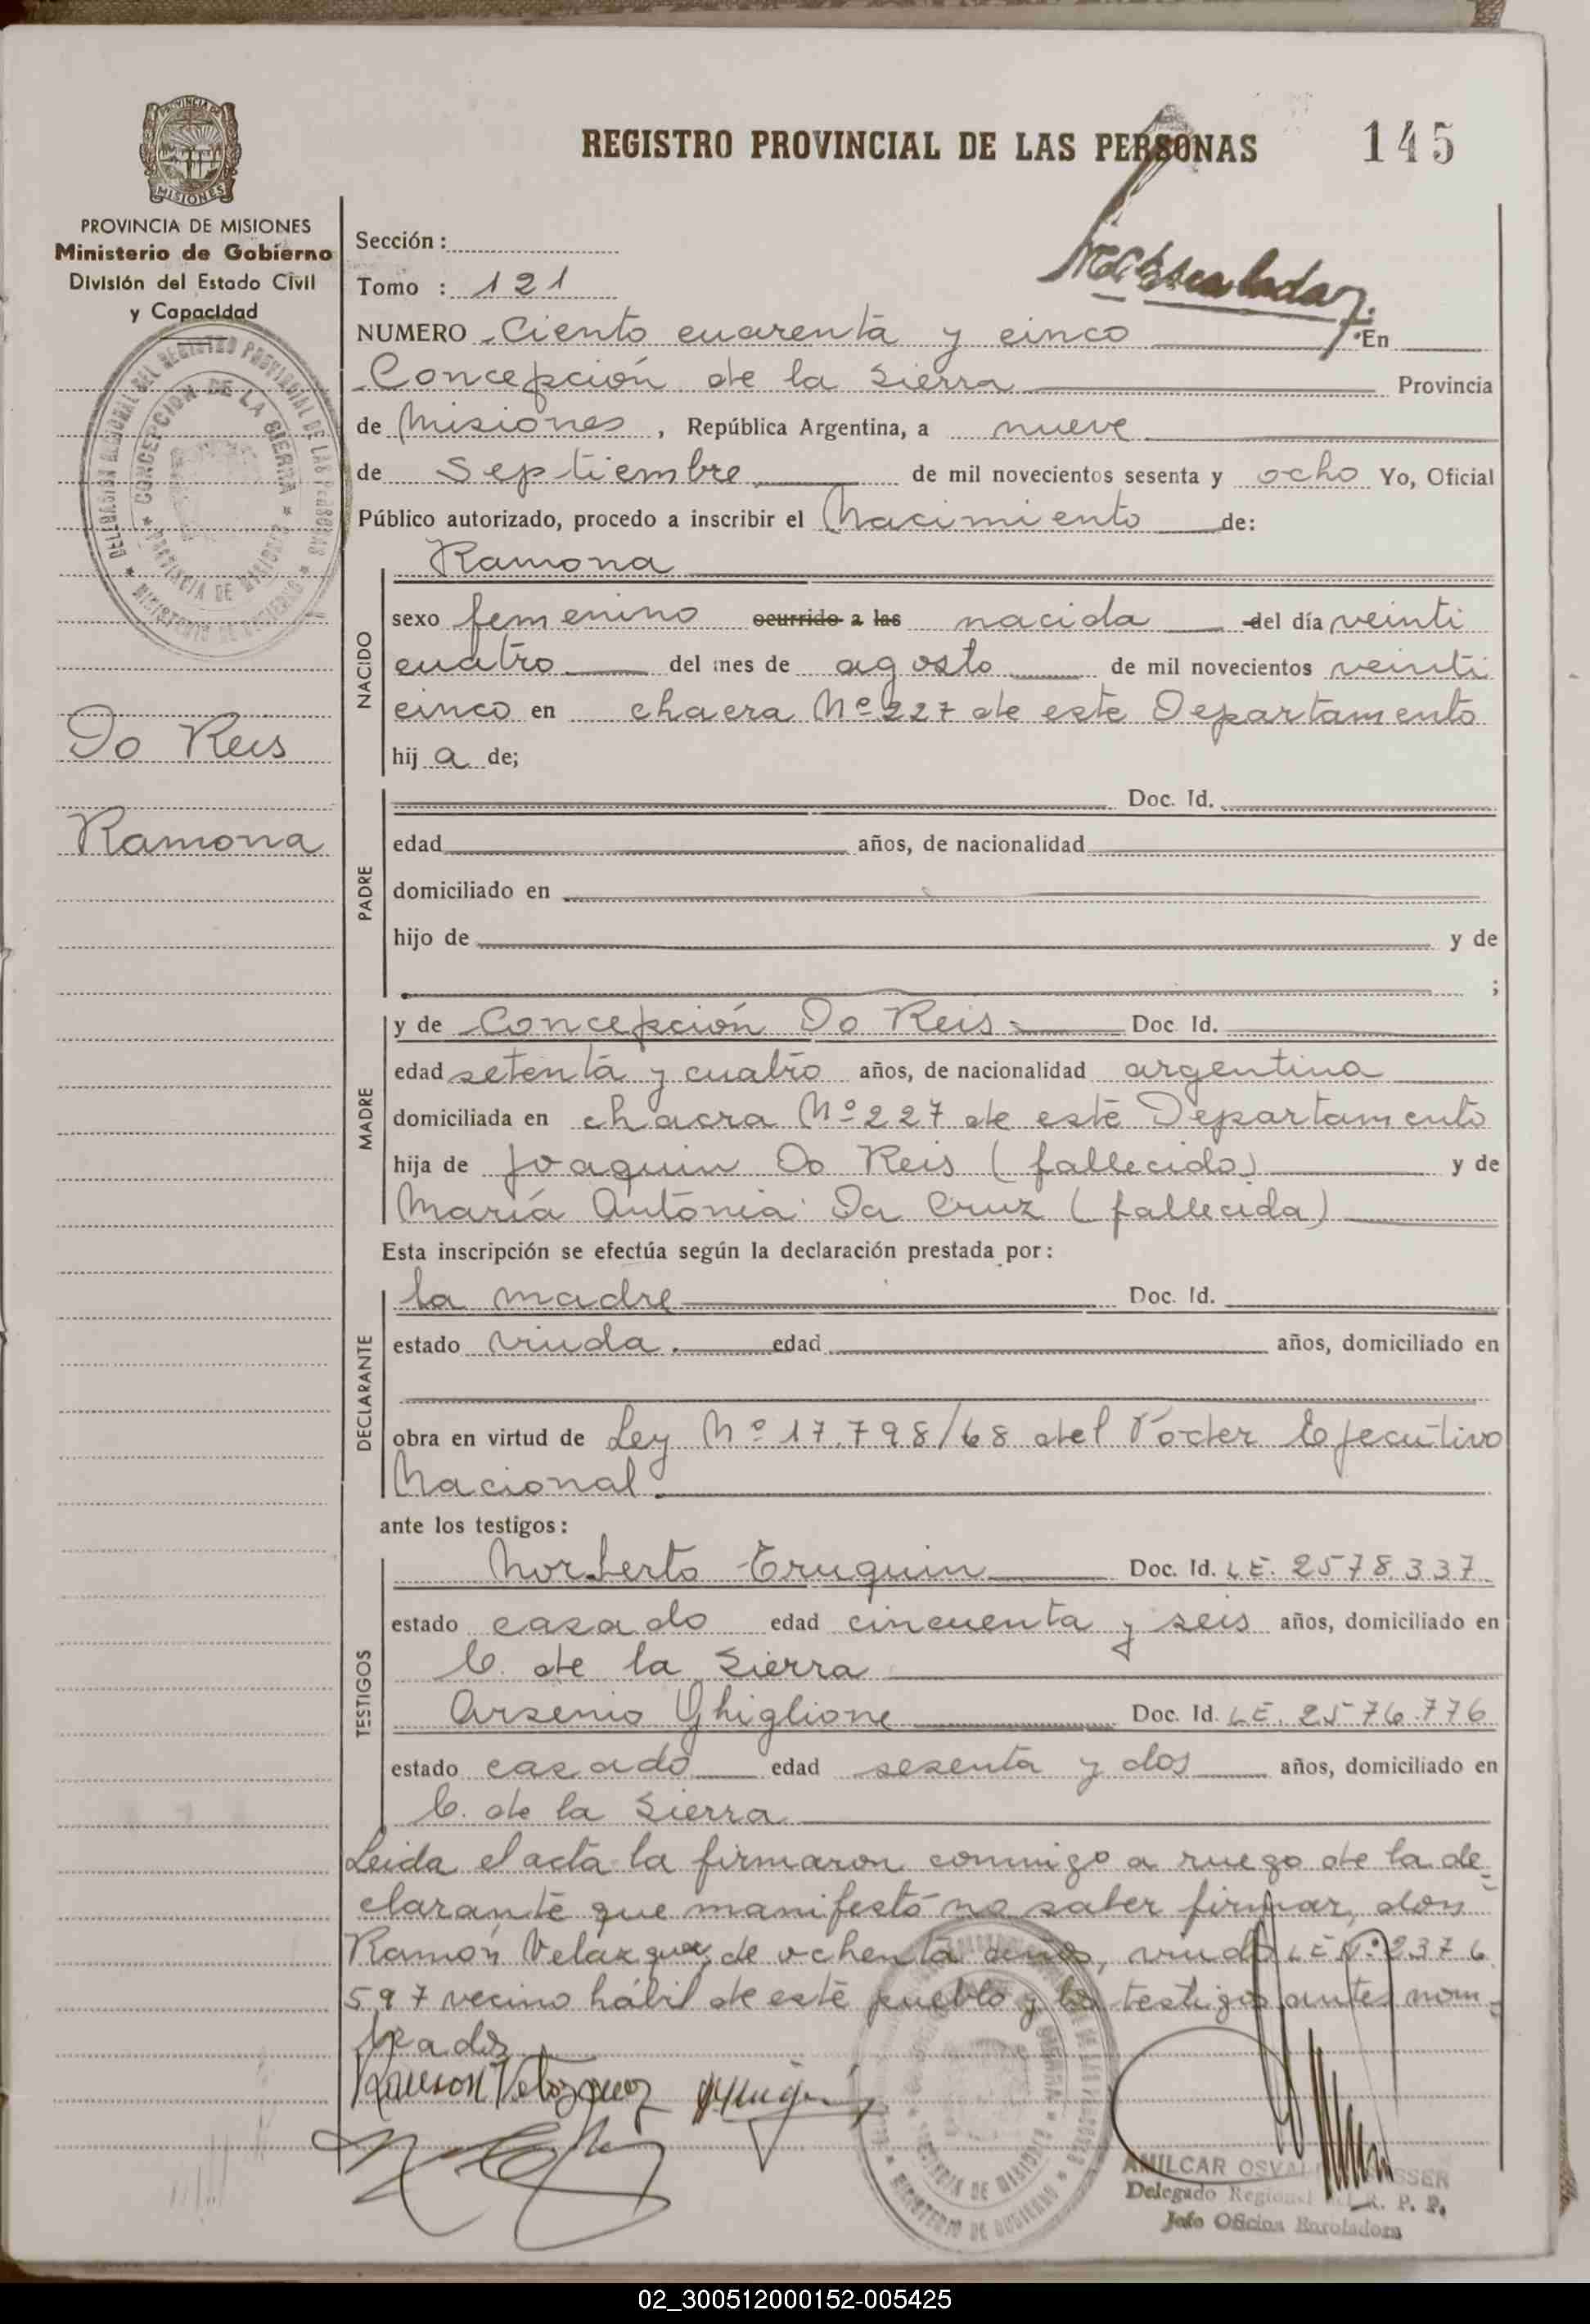 REGISTRO PROVINCIAL DE LAS PERSONAS 145
PROVINCIA DE
MISIONES
PROVINCIA DE MISIONES
Ministerio de Gobierno
División del Estado Civil
y Capacidad
DELEGACION REGIONAL DEL REGISTRO PROVINCIAL DE LAS PERSONAS
* CONCEPCION DE LA SIERRA *
PROVINCIA DE MISIONES
* MINISTERIO DE GOBIERNO *
Do Reis
Ramona
Sección :
Tomo : 121
NUMERO Ciento cuarenta y cinco En
Concepción de la Sierra Provincia
de Misiones , República Argentina, a nueve
de Septiembre de mil novecientos sesenta y ocho Yo, Oficial
Público autorizado, procedo a inscribir el Nacimiento de:
NACIDO
Ramona
sexo femenino ocurrido a las nacida del día veinti
cuatro del mes de agosto de mil novecientos veinti
cinco en chacra Nº 227 de este Departamento
hij a de;
PADRE
Doc. Id.
edad años, de nacionalidad
domiciliado en
hijo de y de
;
MADRE
y de Concepción Do Reis Doc Id.
edad setenta y cuatro años, de nacionalidad argentina
domiciliada en chacra Nº 227 de este Departamento
hija de Joaquin Do Reis (fallecido) y de
María Antonia Da Cruz (fallecida)
Esta inscripción se efectúa según la declaración prestada por:
DECLARANTE
la madre Doc. Id.
estado viuda. edad años, domiciliado en
obra en virtud de Ley Nº 17.798/68 del Poder Ejecutivo
Nacional.
ante los testigos:
TESTIGOS
Norberto Eruquin Doc. Id. L E. 2578.337
estado casado edad cincuenta y seis años, domiciliado en
C. de la Sierra
Arsenio Ghiglione Doc. Id. L E. 2576.776
estado casado edad sesenta y dos años, domiciliado en
C. de la Sierra
Leida el acta la firmaron conmigo a ruego de la de-
clarante que manifestó no saber firmar, don
Ramón Velazquez, de ochenta años, viudo L E Nº 2376
597 vecino hábil de este pueblo y los testigos antes nom-
brados
Ramon Velazquez
AMILCAR
Delegado Regional R. P. P.
Jefe Oficina Enroladora
02_300512000152-005425